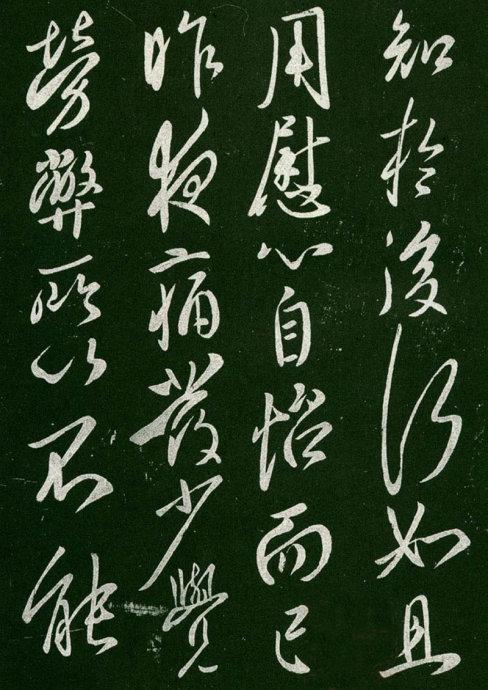 知於後行如且
用慰心自而已
昨夜痛發少覺
勞弊所以不能